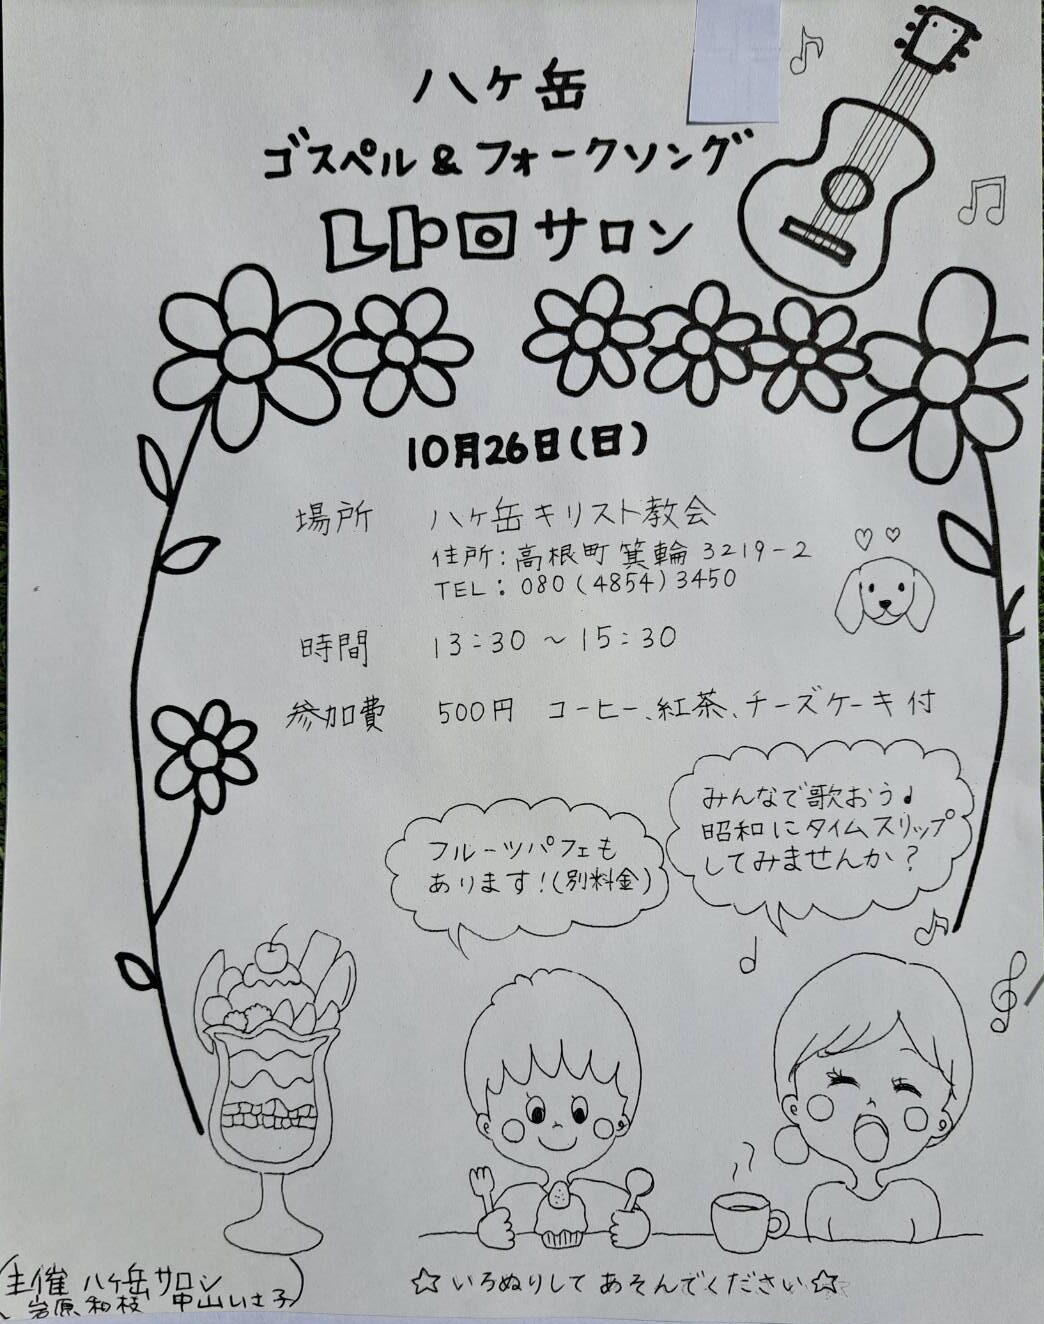 八ヶ岳
ゴスペル&フォークソング
レトロサロン
10月26日(日)
場所 八ヶ岳キリスト教会
住所:高根町箕輪3219-2
TEL:080(4854)3450
時間 13:30～15:30
参加費 500円 コーヒー、紅茶、チーズケーキ付
みんなで歌おう♩
昭和にタイムスリップ
してみませんか?
フルーツパフェも
あります!(別料金)
☆いろぬりしてあそんでください☆
(主催 八ヶ岳サロン
岩原和枝 中山いさ子)